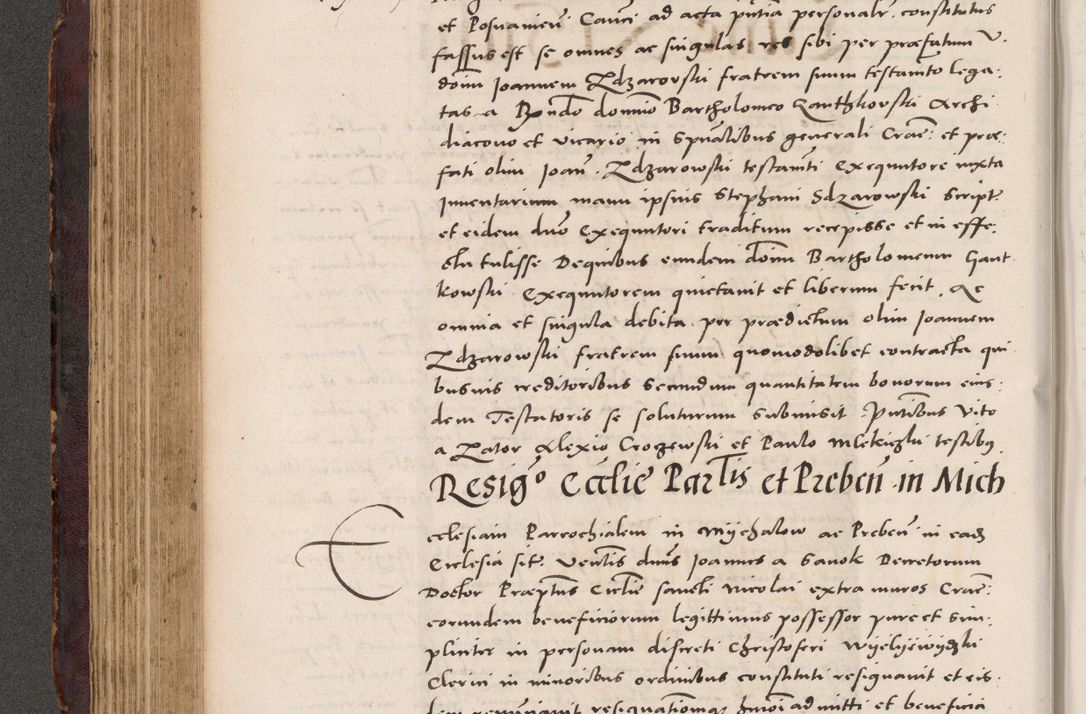 et Posnanien̄ Canci ad acta pn̄tia personalr̄ constitutus
fassus est se omnes ac singulas res sibi per præfatum V.
dom̄ Joannem Zdzarowski fratrem suum testamto lega:
tas a Rn̄do domino Bartholomeo Ganthkowski Archi
diacono et vicario in Spūalibus generali Crac̄: et præ:
fati olim Joan̄. Zdzarowski testam̄ti Exequutore iuxta
Inuentarium manu ipsius Stephani Sdzarowski script:
et eidem dn̄o Exequutori traditum recepisse et in effe:
ctu tulisse De quibus eundem dom̄ Bartholomeum Gant
kowski Exequutorem quietauit et liberum fecit. Ac
omnia et singula debita per prædictum olim Joannem
Zdzarowski fratrem suum quomodolibet contracta qui
busuis creditoribus secundum quantitatem bonorum eius:
dem Testatoris se soluturum submisit Pn̄tibus Vito
a Zator Alexio Crozewski et Paulo Mlekiczki testibus
Resig° Eccl̄ie Parl̄is et Preben̄ in Mich
Ecclesiam Parrochialem in Myehalow ac Preben̄ in ead
Ecclesia sit: Ven̄lis dn̄s Joannes a Sanok Decretorum
Doctor Præp̄tus Eccl̄ie sancti Nicolai extra muros Crac̄:
eorundem beneficiorum legittimus possessor pure et sim:
pliciter in personam discreti Christoferi
Clerici in minoribus ordinibus constituti resignauit et eis:
dem renunciauit resignationemq admitti et beneficia